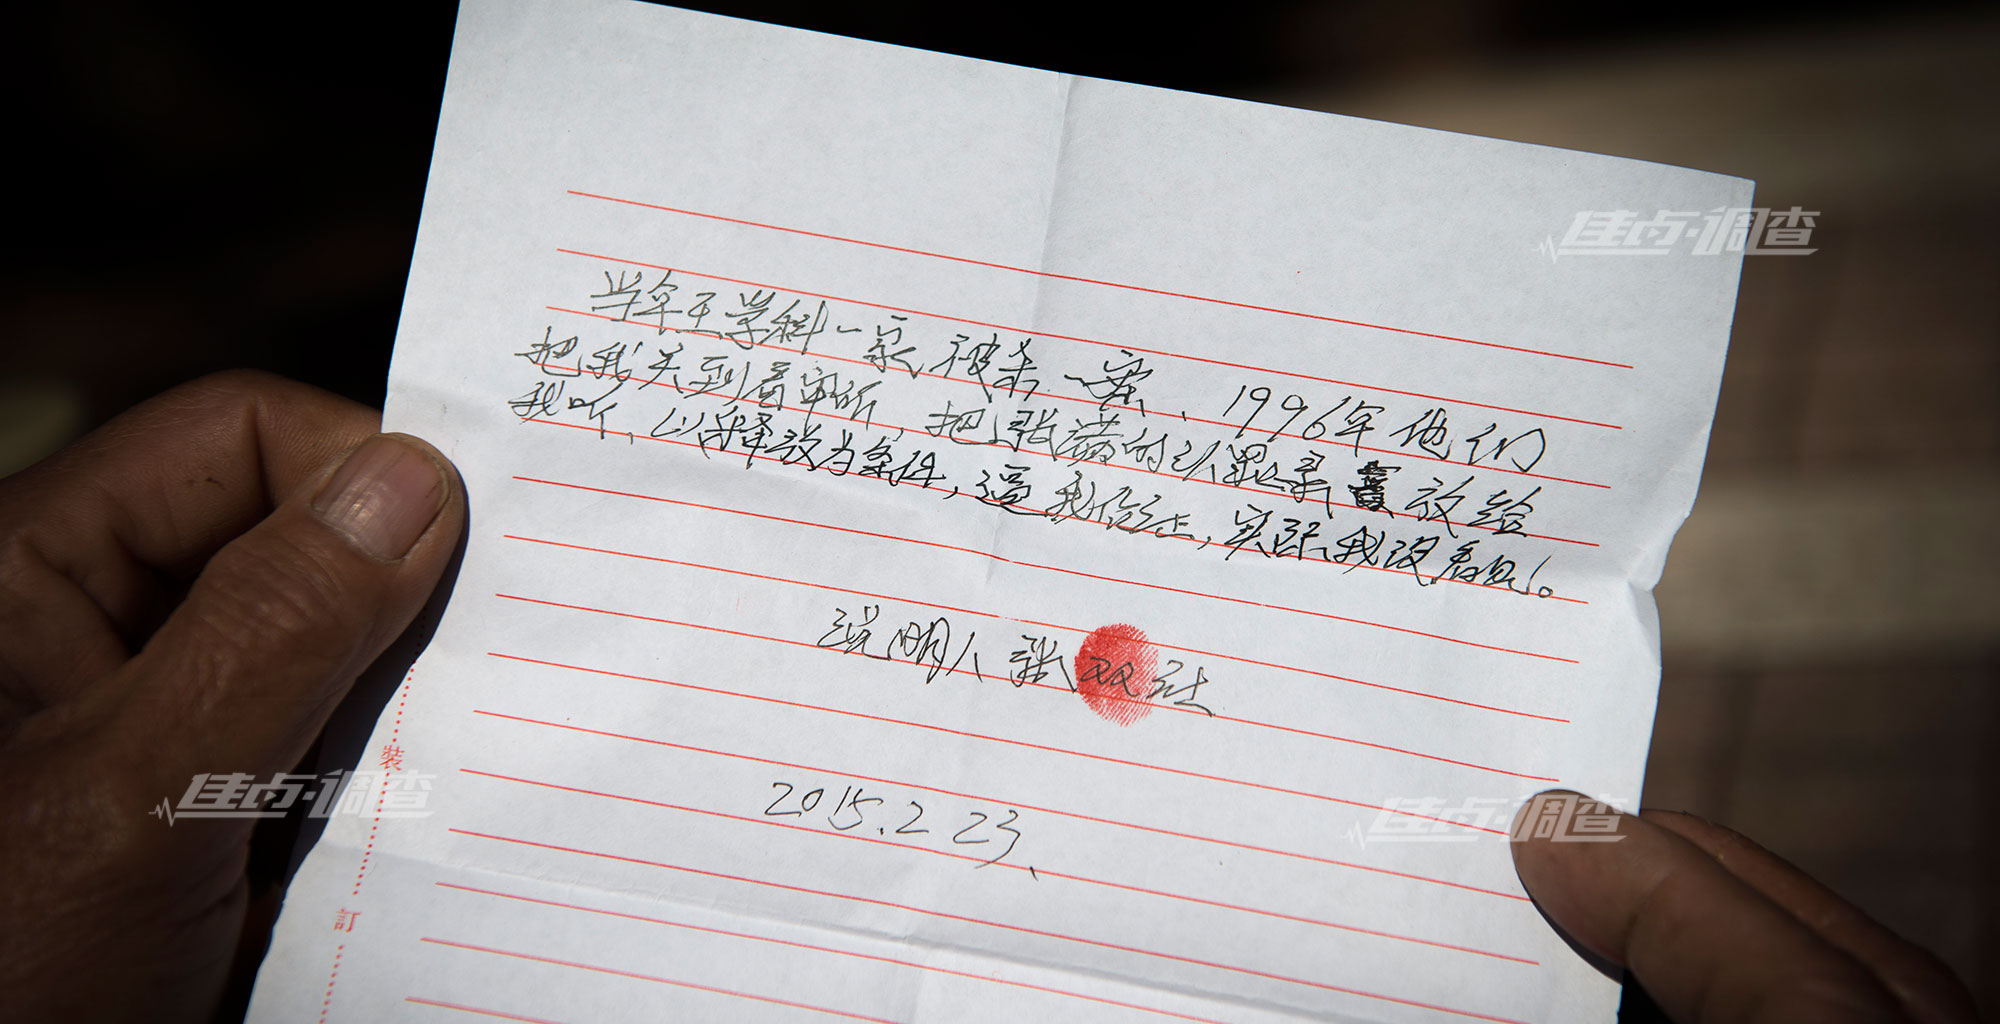 焦点·调查
当年王学科一家被杀一案、1996年他们
把我关到看守所，把张满的认罪录音放给
我听、以释放为条件，逼我作证，实际我没看见。
说明人 张双社
2015.2 23、
裝
焦点·调查
焦点·调查
訂